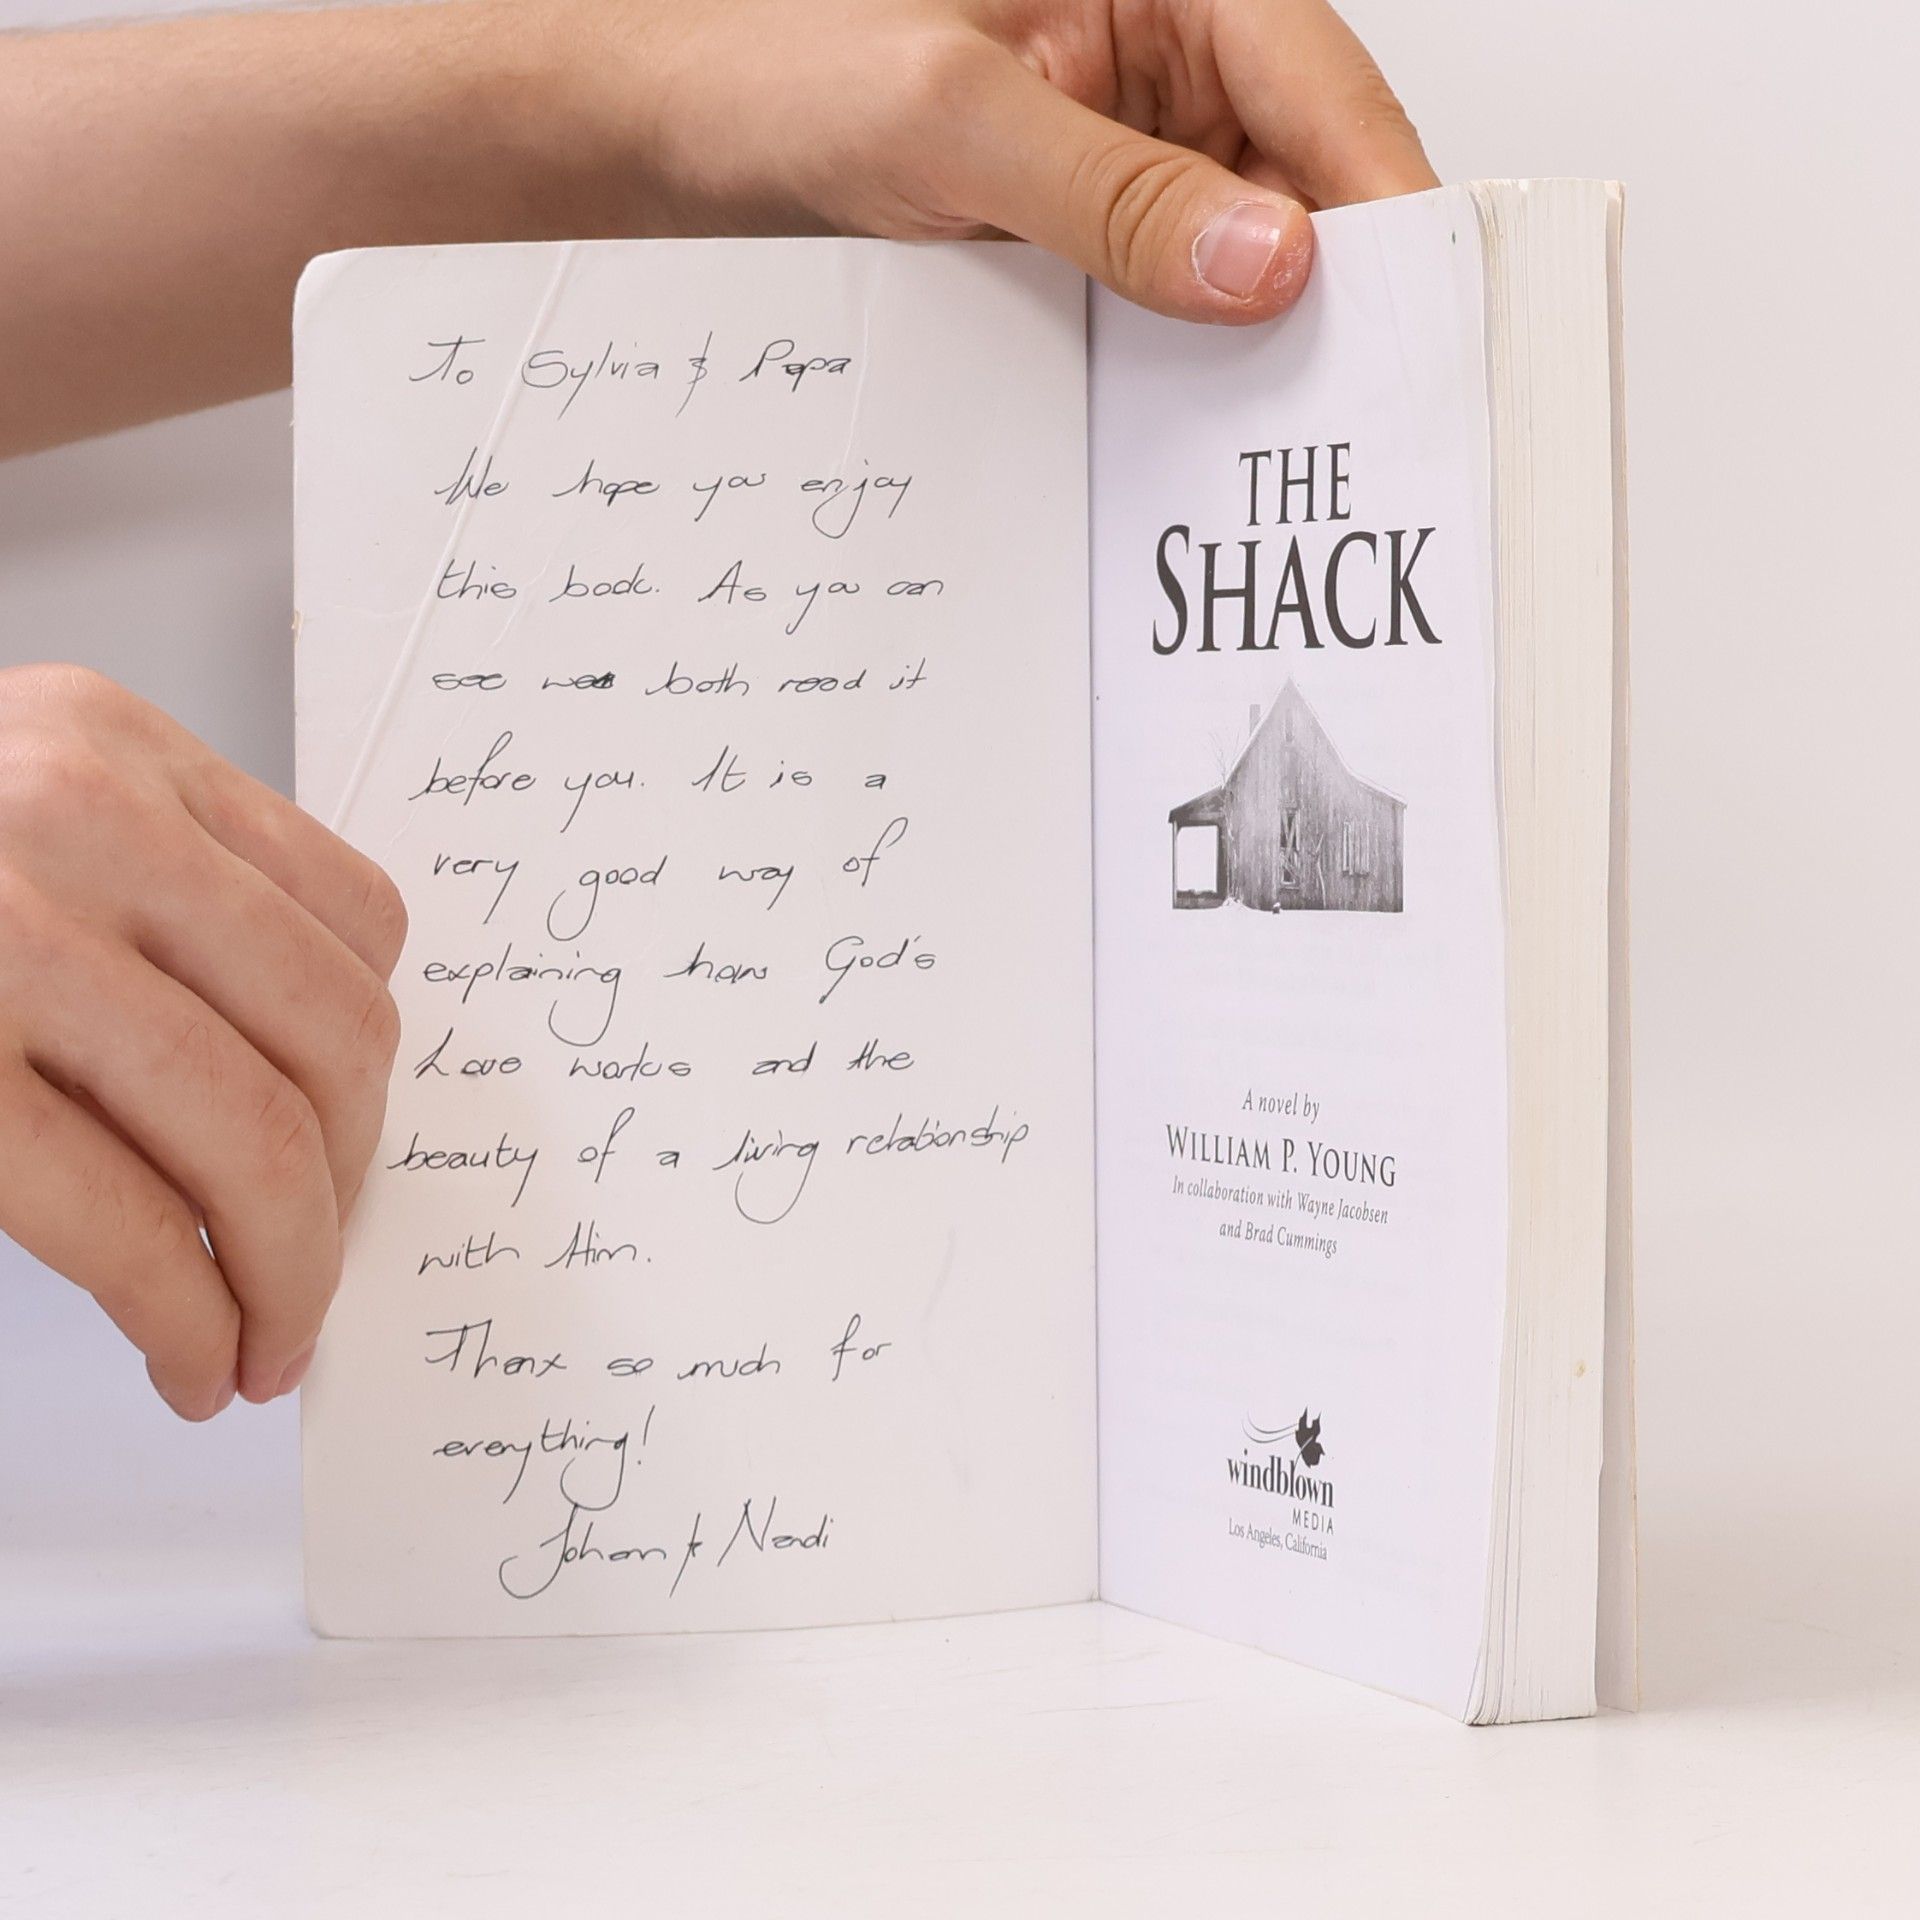 To Sylvia & Papa
We hope you enjoy
this book. As you can
see we both read it
before you. It is a
very good way of
explaining how God's
Love works and the
beauty of a living relationship
with Him.
Thanx so much for
everything!
Johan & Nandi
THE
SHACK
A novel by
WILLIAM P. YOUNG
In collaboration with Wayne Jacobsen
and Brad Cummings
windblown
MEDIA
Los Angeles, California